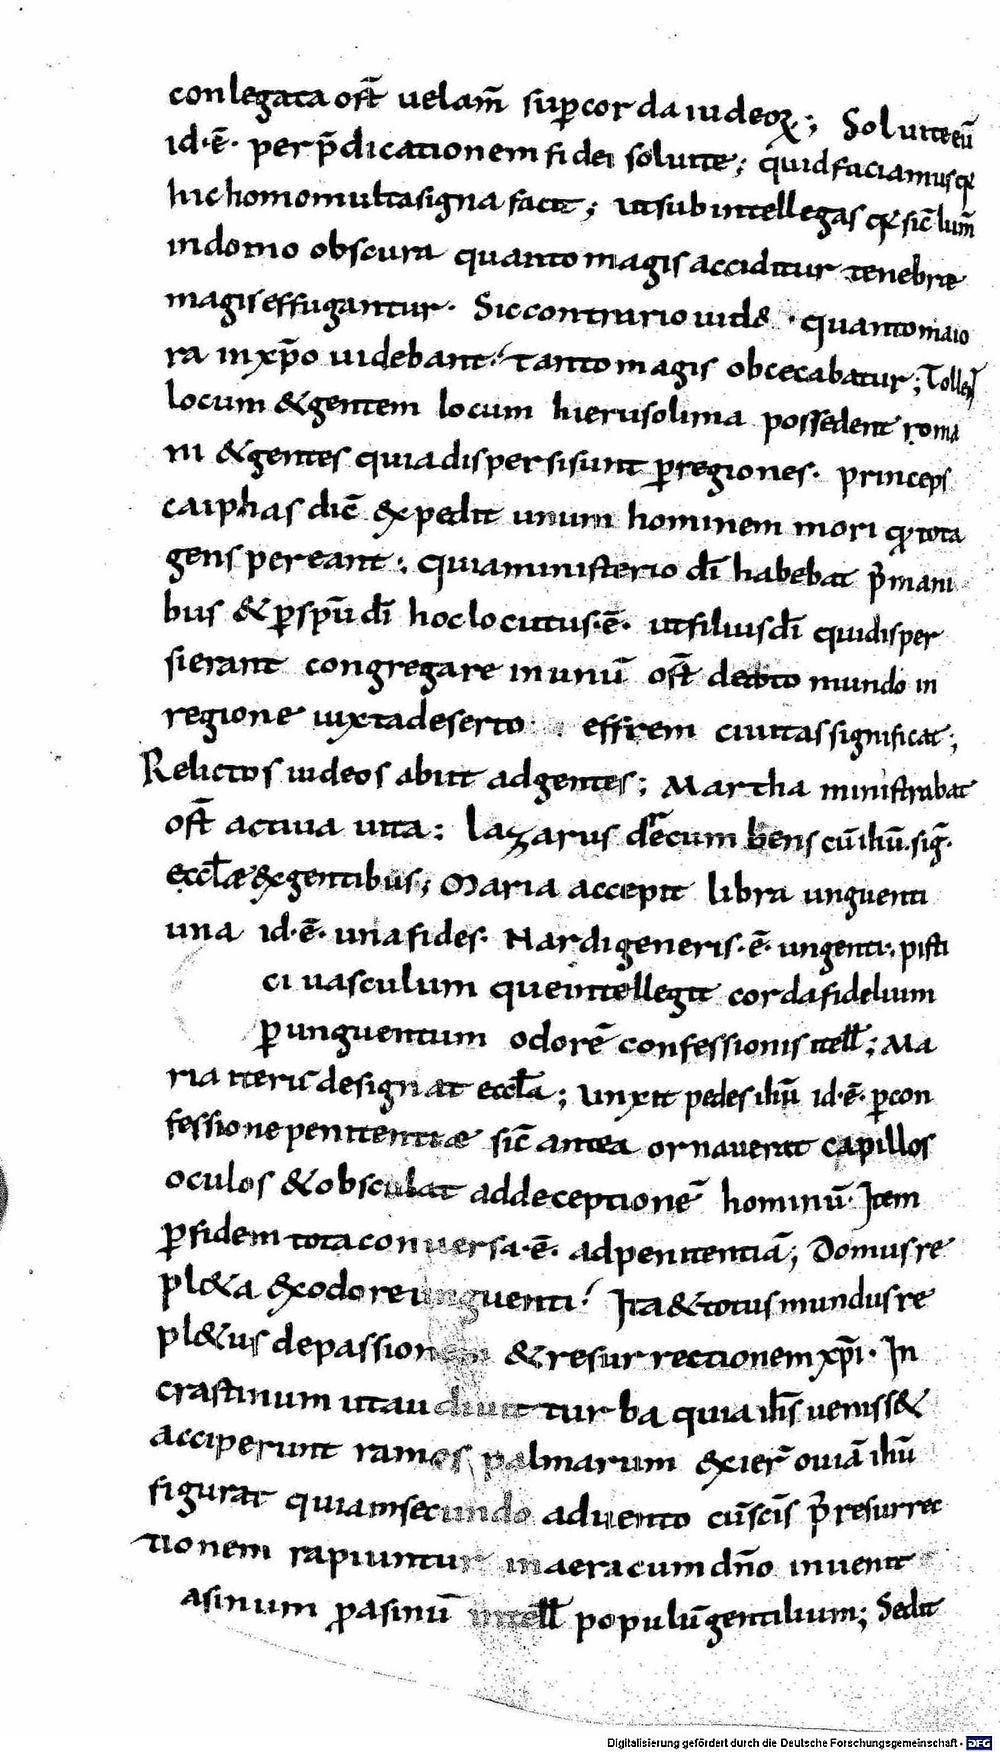 conlegata ost̄ uelam̄ sup̲ corda iudeoꝝ; Soluite eū
id·ē· per p̄dicationem fidei soluite; quid faciamus qꝛ
hic homo multa signa facit; ut subintellegas qꝛ sic̄ lum̄
in domo obscura quanto magis acciditur tenebre
magis effugantur· Sic contrario uid& · quanto maio
ra in xp̄o uidebant· tanto magis obcecabatur; Tollen̄t
locum & gentem locum hierusolima possedent roma
ni & gentes quia dispersi sunt ꝑ regiones· princeps
caiphas dic̄ expedit unum hominem mori qꝛ tota
gens pereant; quia ministerio dī habebat p̄ mani
bus & ꝑ spū dī hoc locutus·ē· ut filius dī qui disper
sierant congregare in unū ost̄ mundo in
regione iuxta deserto· effrem ciuitas significat;
Relictos iudeos abiit ad gentes; Martha ministrabat
ost̄ actiua uita: lazarus cū ihū· siḡ·
eccl̄æ ex gentibus; Maria accepit libra unguenti
una id·ē· una fides· Nardi generis·ē· ungenti; pisti
ci uasculum que intellegit corda fidelium
ꝑ unguentum odorē confessionis itell̄; Ma
ria iteris designat eccl̄a; Unxit pedes ihū id·ē· ꝑ con
fessione penitentiæ sic̄ antea ornauerat capillos
oculos & obsculat ad deceptionē hominū· Item
ꝑ fidem tota conuersa·ē· ad penitentiā; Domus re
pl&a ex odore unguenti· Ita & totus mundus re
pl&us de passionem & resurrectionem xp̄i· In
crastinum ut audiuit turba quia ih̄s ueniss&
acciperunt ramos palmarum exier̄ ouiā ihū
figurat quia in secundo aduento cū sc̄is p̄ resurrec
tionem rapiuntur in aera cum dn̄o inuenit
asinum ꝓ asinū intell̄ populū gentilium; Sedit
Digitalisierung gefördert durch die Deutsche Forschungsgemeinschaft - DFG